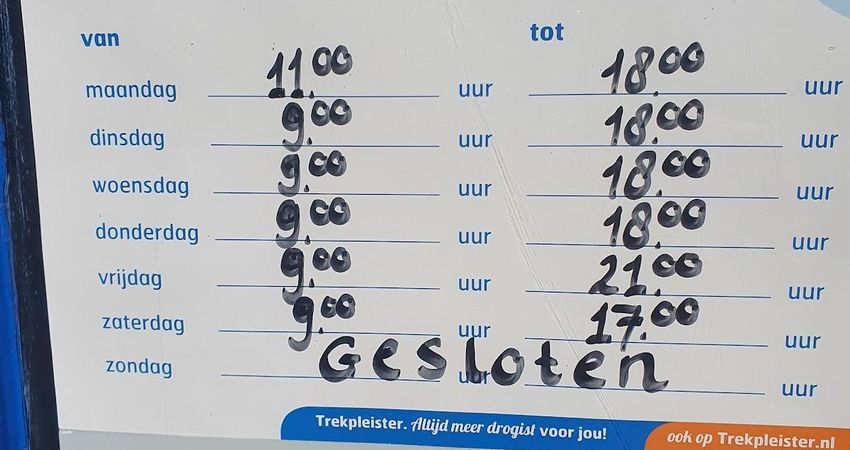 van tot
maandag 11.00 uur 18.00 uur
dinsdag 9.00 uur 18.00 uur
woensdag 9.00 uur 18.00 uur
donderdag 9.00 uur 18.00 uur
vrijdag 9.00 uur 21.00 uur
zaterdag 9.00 uur 17.00 uur
zondag Gesloten uur uur
Trekpleister. Altijd meer drogist voor jou!
ook op Trekpleister.nl